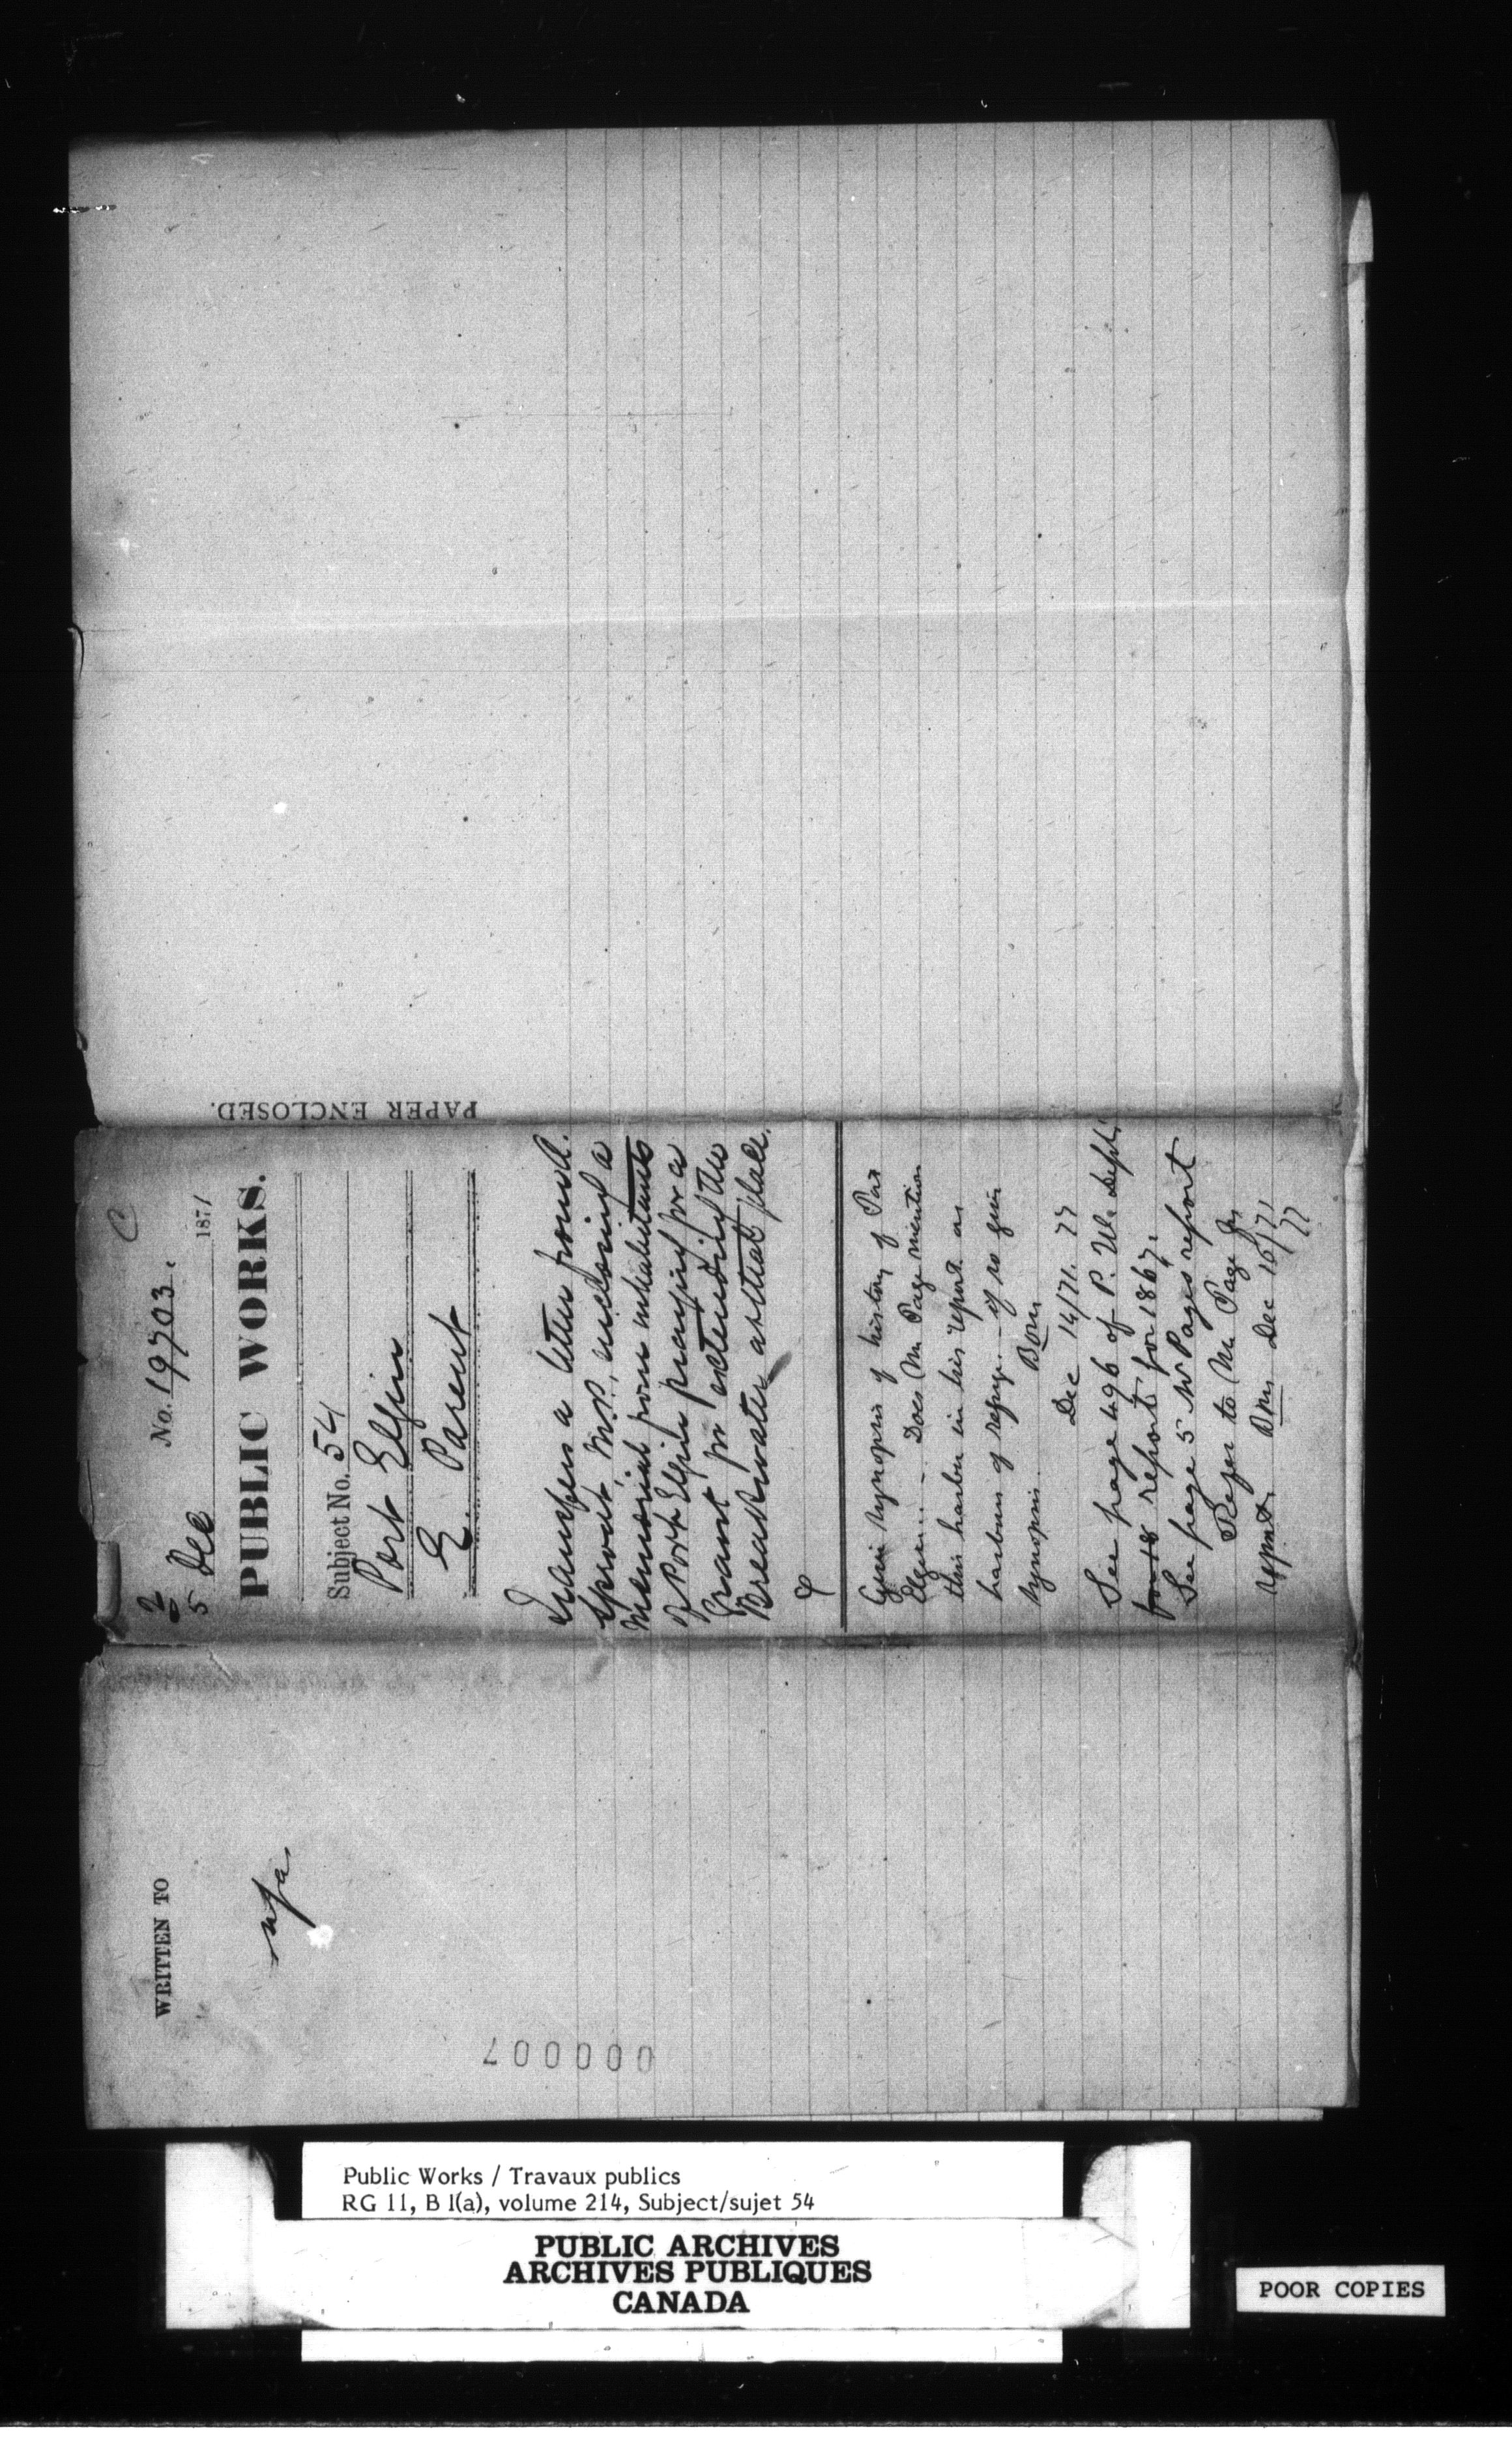 C
No. 19703.
2/5 Dec 1871
PUBLIC WORKS.
Subject No. 54
Port Elgin
E. Parent
Transfer a letter from A.
Sproat, M.P., enclosing a
Memorial from inhabitants
of Port Elgin praying for a
Grant for extending the
Breakwater at that place.
Give synopsis of history of Port
Elgin. Does Mr Page mention
this harbor in his report as
harbour of refuge. if so give
synopsis.
Dec 14/71.
See page 496 of P. W. Dept.
report for 1867.
See page 5 Mr Pages report
Refer to Mr. Page for
report. Dec 15/71
PAPER ENCLOSED.
WRITTEN TO
nfa
000007
Public Works / Travaux publics
RG 11, B 1(a), volume 214, Subject/sujet 54
PUBLIC ARCHIVES
ARCHIVES PUBLIQUES
CANADA
POOR COPIES